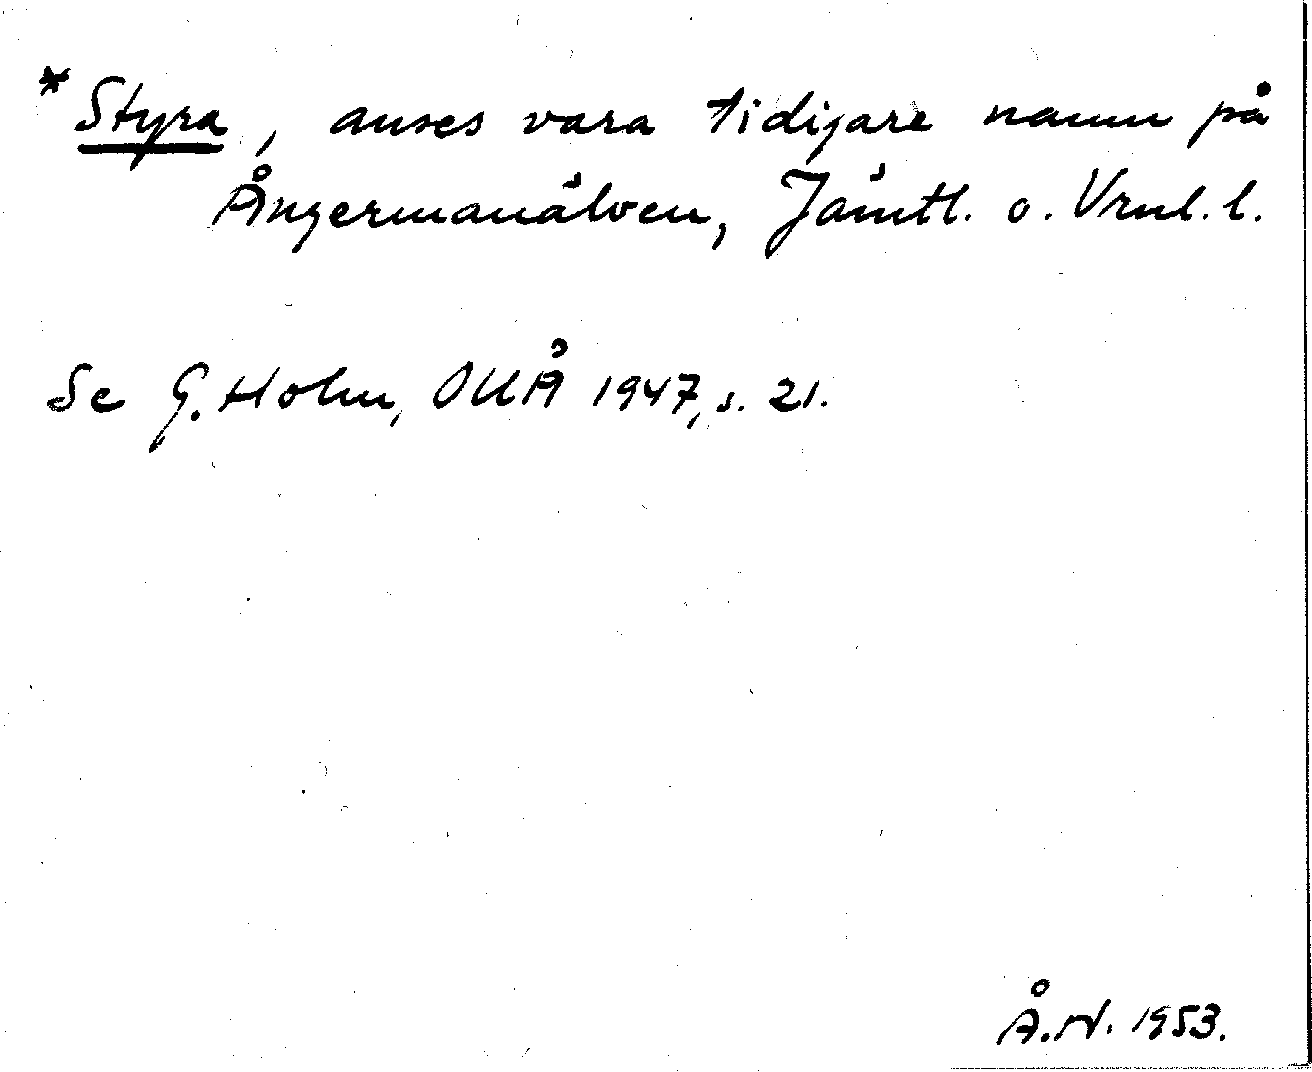 *Styra, anses vara tidigare namn på
Ångermanälven, Jämtl. o. Vrnl. l.
Se G. Holm, OUÅ 1947, s. 21.
Å.N. 1953.